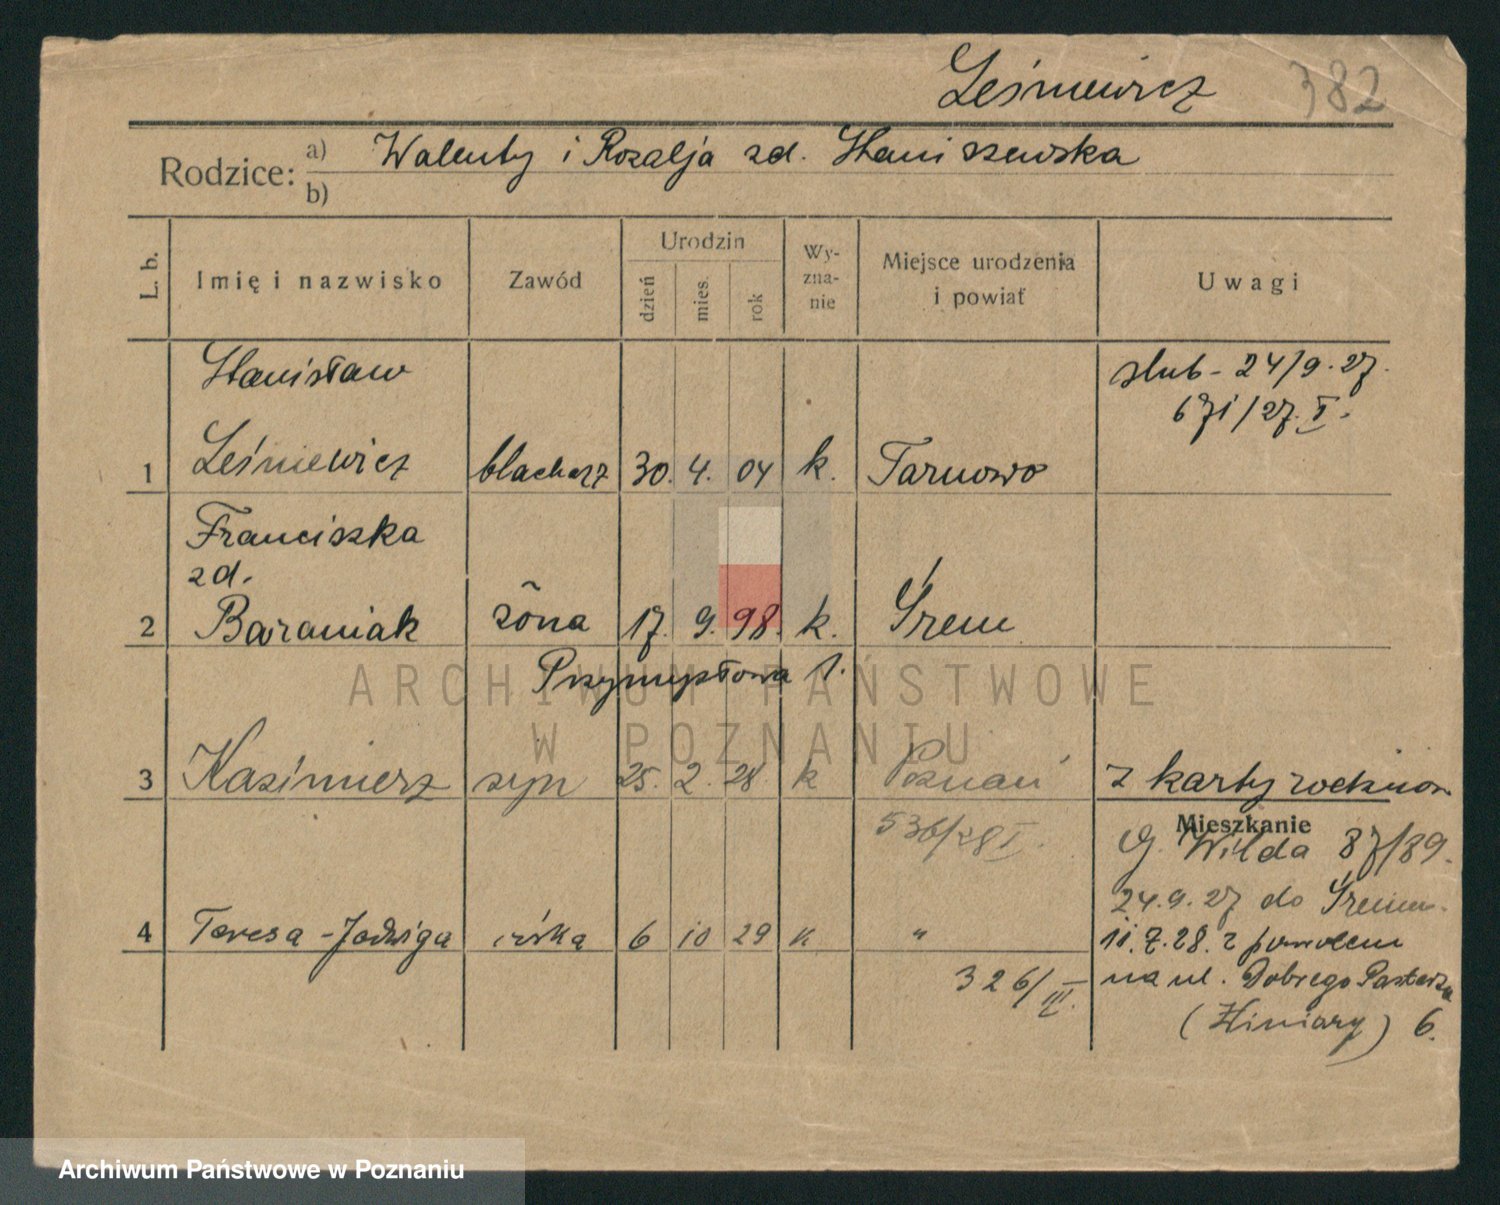 Leśniewicz 382
Rodzice: a) Walenty i Rozalja zd. Staniszewska
b)
L. b. Imię i nazwisko Zawód Urodzin dzień mies. rok Wy-zna-nie Miejsce urodzenia i powiat Uwagi
Stanisław ślub - 24/9.27.
671/27. I.
1 Leśniewicz blacharz 30. 4. 04 k. Tarnowo
Franciszka
zd.
2 Baraniak żona 17. 9. 98. k. Śrem
Przemysłowa 1.
3 Kazimierz syn 25. 2. 28 k Poznań z karty
536/28 I. Mieszkanie
G. Wilda 87/89.
24.9.27 do Śremu.
4 Teresa-Jadwiga córka 6 10 29 k " 11.7.28. z
326/III. na ul. Dobrego Pasterza
(Winiary) 6.
ARCHIWUM PAŃSTWOWE
W POZNANIU
Archiwum Państwowe w Poznaniu